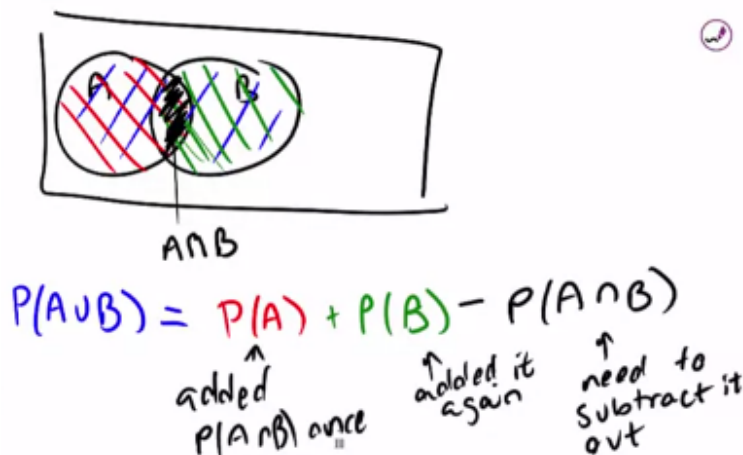 A B
A∩B
P(A∪B) = P(A) + P(B) - P(A∩B)
added P(A∩B) once
added it again
need to subtract it out